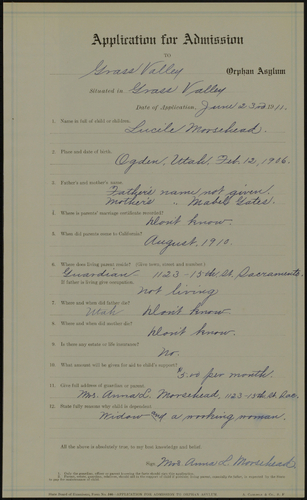 Application for Admission
TO
Grass Valley Orphan Asylum
Situated in Grass Valley
Date of Application, June 23rd 1911.
1. Name in full of child or children.
Lucile Moorehead.
2. Place and date of birth.
Ogden, Utah, Feb. 12, 1906.
3. Father's and mother's name.
Father's name not given.
Mother's " Mabel Yates.
4. Where is parents' marriage certificate recorded?
Don't know.
5. When did parents come to California?
August, 1910.
6. Where does living parent reside? (Give town, street and number.)
Guardian 1123-15th St. Sacramento.
If father is living give occupation.
Not living
7. Where and when did father die?
Utah Don't know.
8. Where and when did mother die?
Don't know.
9. Is there any estate or life insurance?
No.
10. What amount will be given for aid to child's support?
$5.00 per month.
11. Give full address of guardian or parent.
Mrs. Anna L. Moorehead, 1123-15th St. Sac.
12. State fully reasons why child is dependent.
Widow and a working woman.
All the above is absolutely true, to my best knowledge and belief.
Sign Mrs Anna L. Moorehead